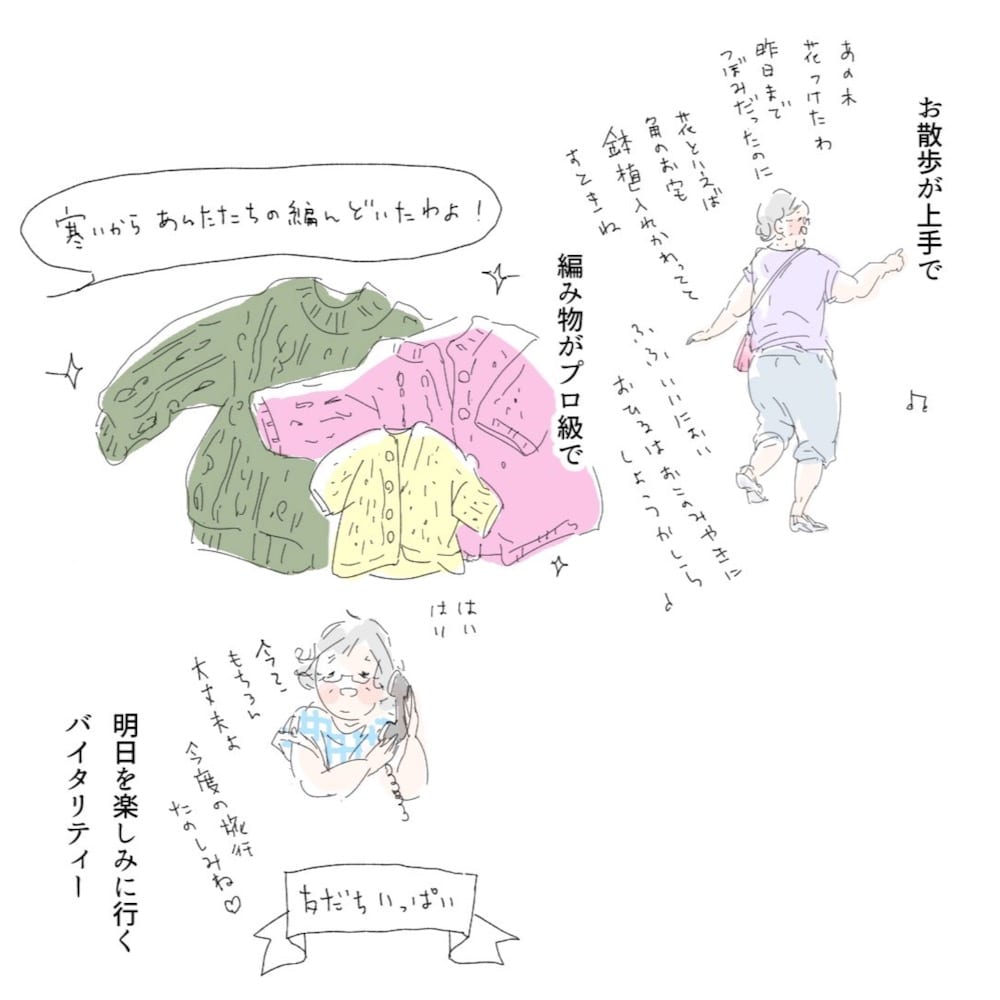 お散歩が上手で
あの木
花つけたわ
昨日まで
つぼみだったのに
花といえば
角のお宅
鉢植入れかわってて
すてきね
ふふ いいにおい
おひるはおこのみやきに
しようかしら♪
編み物がプロ級で
寒いから あんたたちの編んどいたわよ!
はい
はい
今?
もちろん
大丈夫よ
今度の旅行
たのしみね♡
友だちいっぱい
明日を楽しみに行く
バイタリティー